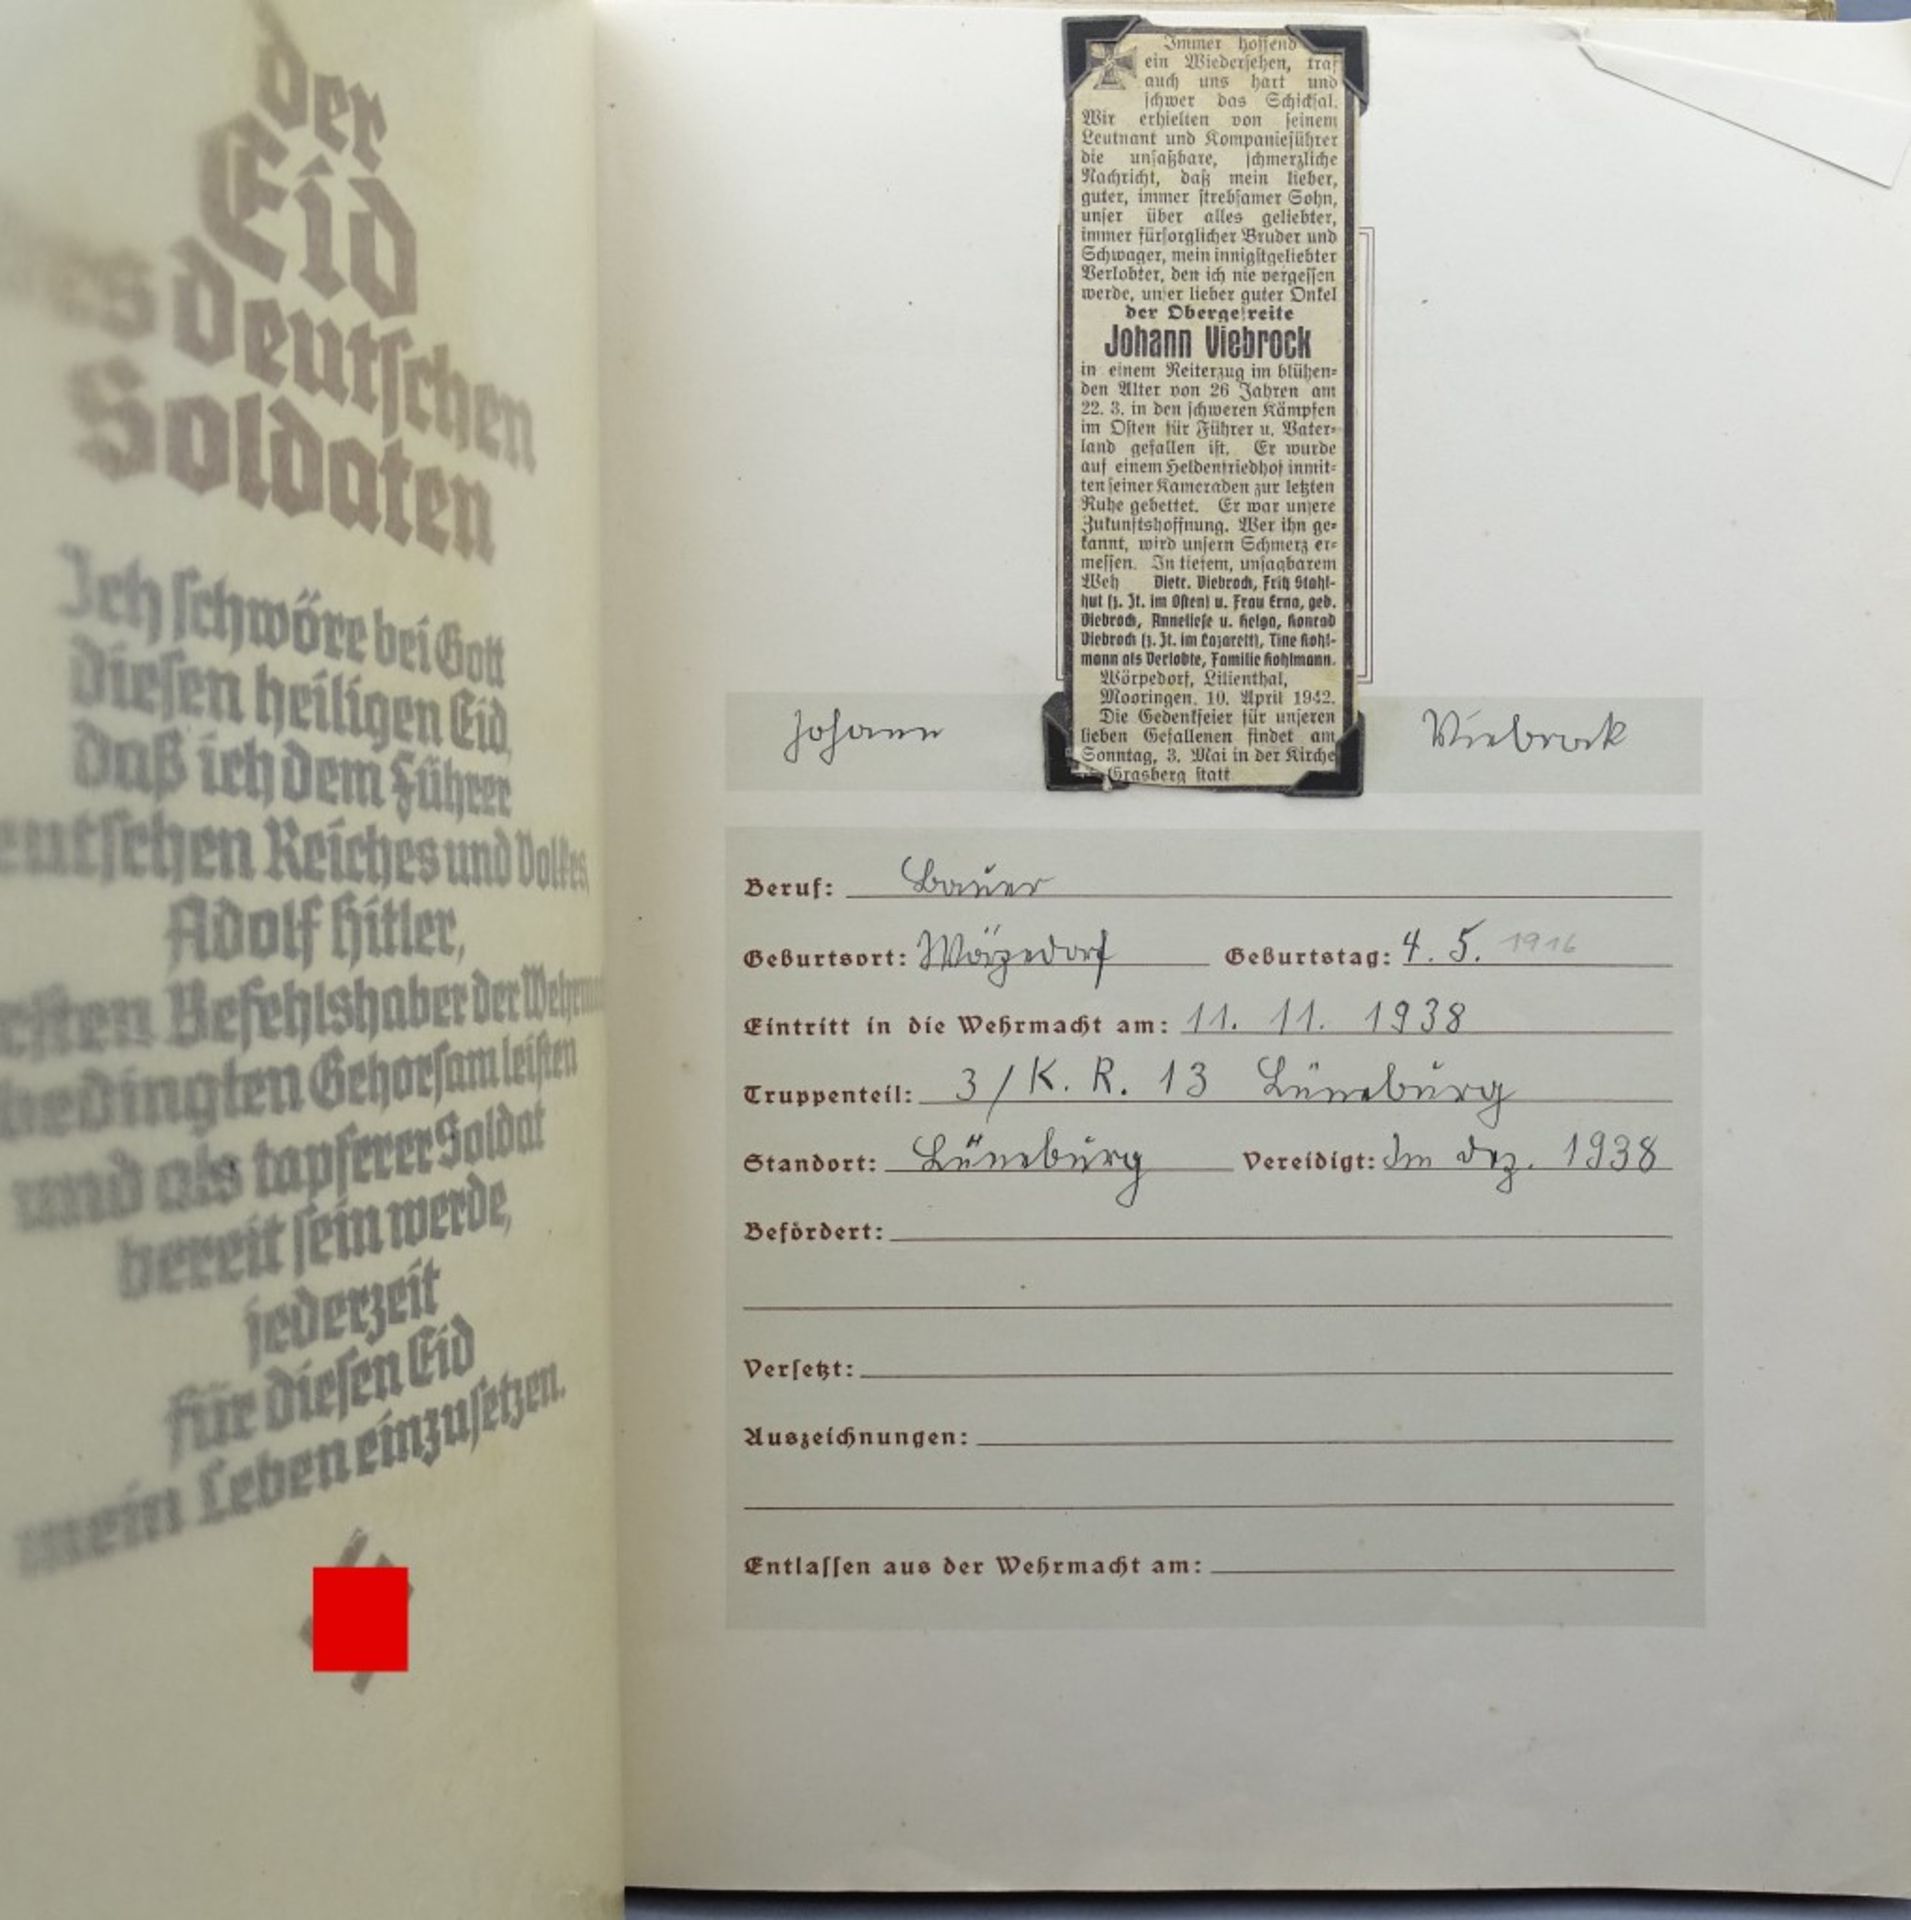 der
Eid
des deutschen
Soldaten
Ich schwöre bei Gott
diesen heiligen Eid,
daß ich dem Führer
deutschen Reiches und Volkes,
Adolf Hitler,
Befehlshaber der Wehrmacht
Gehorsam leisten
und als tapferer Soldat
bereit sein werde,
jederzeit
für diesen Eid
mein Leben einzusetzen.
Immer hoffend
ein Wiedersehen, traf
auch uns hart und
schwer das Schicksal.
Wir erhielten von seinem
Leutnant und Kompanieführer
die unfaßbare, schmerzliche
Nachricht, daß mein lieber,
guter, immer strebsamer Sohn,
unser über alles geliebter,
immer fürsorglicher Bruder und
Schwager, mein innigstgeliebter
Verlobter, den ich nie vergessen
werde, unser lieber guter Onkel
der Obergefreite
Johann Viebrock
in einem Reiterzug im blühen=
den Alter von 26 Jahren am
22. 3. in den schweren Kämpfen
im Osten für Führer u. Vater=
land gefallen ist. Er wurde
auf einem Heldenfriedhof inmit=
ten seiner Kameraden zur letzten
Ruhe gebettet. Er war unsere
Zukunftshoffnung. Wer ihn ge=
kannt, wird unsern Schmerz er=
messen. In tiefem, unsagbarem
Weh Dietr. Viebrock, Fritz Stahl-
hut (z. Zt. im Osten) u. Frau Erna, geb.
Viebrock, Anneliese u. Helga, Konrad
Viebrock (z. Zt. im Lazarett), Tine Kohl-
mann als Verlobte, Familie Kohlmann.
Wörpedorf, Lilienthal,
Mooringen, 10. April 1942.
Die Gedenkfeier für unseren
lieben Gefallenen findet am
Sonntag, 3. Mai in der Kirche
Grasberg statt
Johann Viebrock
Beruf: Bauer
Geburtsort: Wörpedorf Geburtstag: 4. 5. 1916
Eintritt in die Wehrmacht am: 11. 11. 1938
Truppenteil: 3/K. R. 13 Lüneburg
Standort: Lüneburg Vereidigt: Im Dez. 1938
Befördert:
Versetzt:
Auszeichnungen:
Entlassen aus der Wehrmacht am: